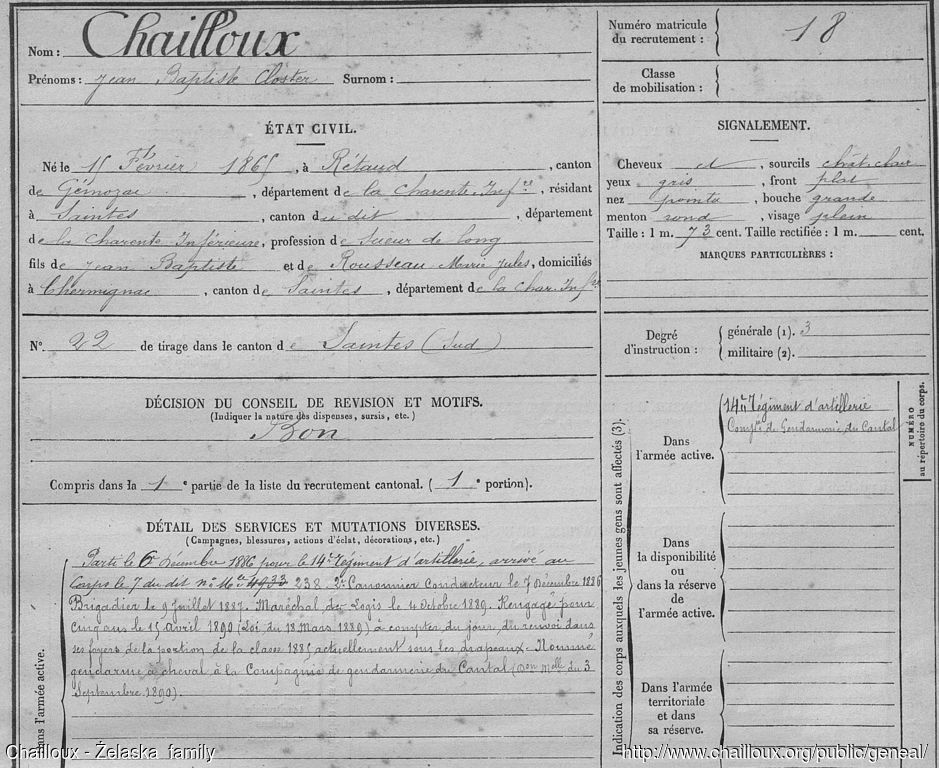 Nom : Chailloux
Prénoms : Jean Baptiste Closter Surnom :
ÉTAT CIVIL.
Né le 15 Février 1865, à Rétaud, canton
de Gémozac, département de la Charente-Infre, résidant
à Saintes, canton du dit, département
de la Charente Inférieure, profession de Scieur de long
fils de Jean Baptiste et de Rousseau Marie Jules, domiciliés
à Chermignac, canton de Saintes, département de la Char. Infre
N°. 22 de tirage dans le canton de Saintes (Sud)
DÉCISION DU CONSEIL DE REVISION ET MOTIFS.
(Indiquer la nature des dispenses, sursis, etc.)
Bon
Compris dans la 1e partie de la liste du recrutement cantonal. (1e portion).
DÉTAIL DES SERVICES ET MUTATIONS DIVERSES.
(Campagnes, blessures, actions d'éclat, décorations, etc.)
Dans l'armée active.
Parti le 6 Décembre 1886 pour le 14e Régiment d'artillerie, arrivé au
Corps le 7 du dit n° Mle 4933 238. 2e Canonnier Conducteur le 7 Décembre 1886
Brigadier le 9 Juillet 1887. Maréchal des Logis le 4 Octobre 1889. Rengagé pour
cinq ans le 15 avril 1890 (Loi du 18 Mars 1889) à compter du jour du renvoi dans
ses foyers de la portion de la classe 1885 actuellement sous les drapeaux. Nommé
gendarme à cheval à la Compagnie de gendarmerie du Cantal (Don Melle du 3
Septembre 1890)
Numéro matricule
du recrutement : 18
Classe
de mobilisation :
SIGNALEMENT.
Cheveux et, sourcils chât. clair
yeux gris, front plat
nez pointu, bouche grande
menton rond, visage plein
Taille : 1 m. 73 cent. Taille rectifiée : 1 m. cent.
MARQUES PARTICULIÈRES :
Degré
d'instruction :
générale (1). 3
militaire (2).
Indication des corps auxquels les jeunes gens sont affectés (3).
Dans
l'armée active.
14e Régiment d'artillerie
Compie de Gendarmerie du Cantal
NUMÉRO
au répertoire du corps.
Dans
la disponibilité
ou
dans la réserve
de
l'armée active.
Dans l'armée
territoriale
et dans
sa réserve.
Chailloux - Żelaska family
http://www.chailloux.org/public/geneal/